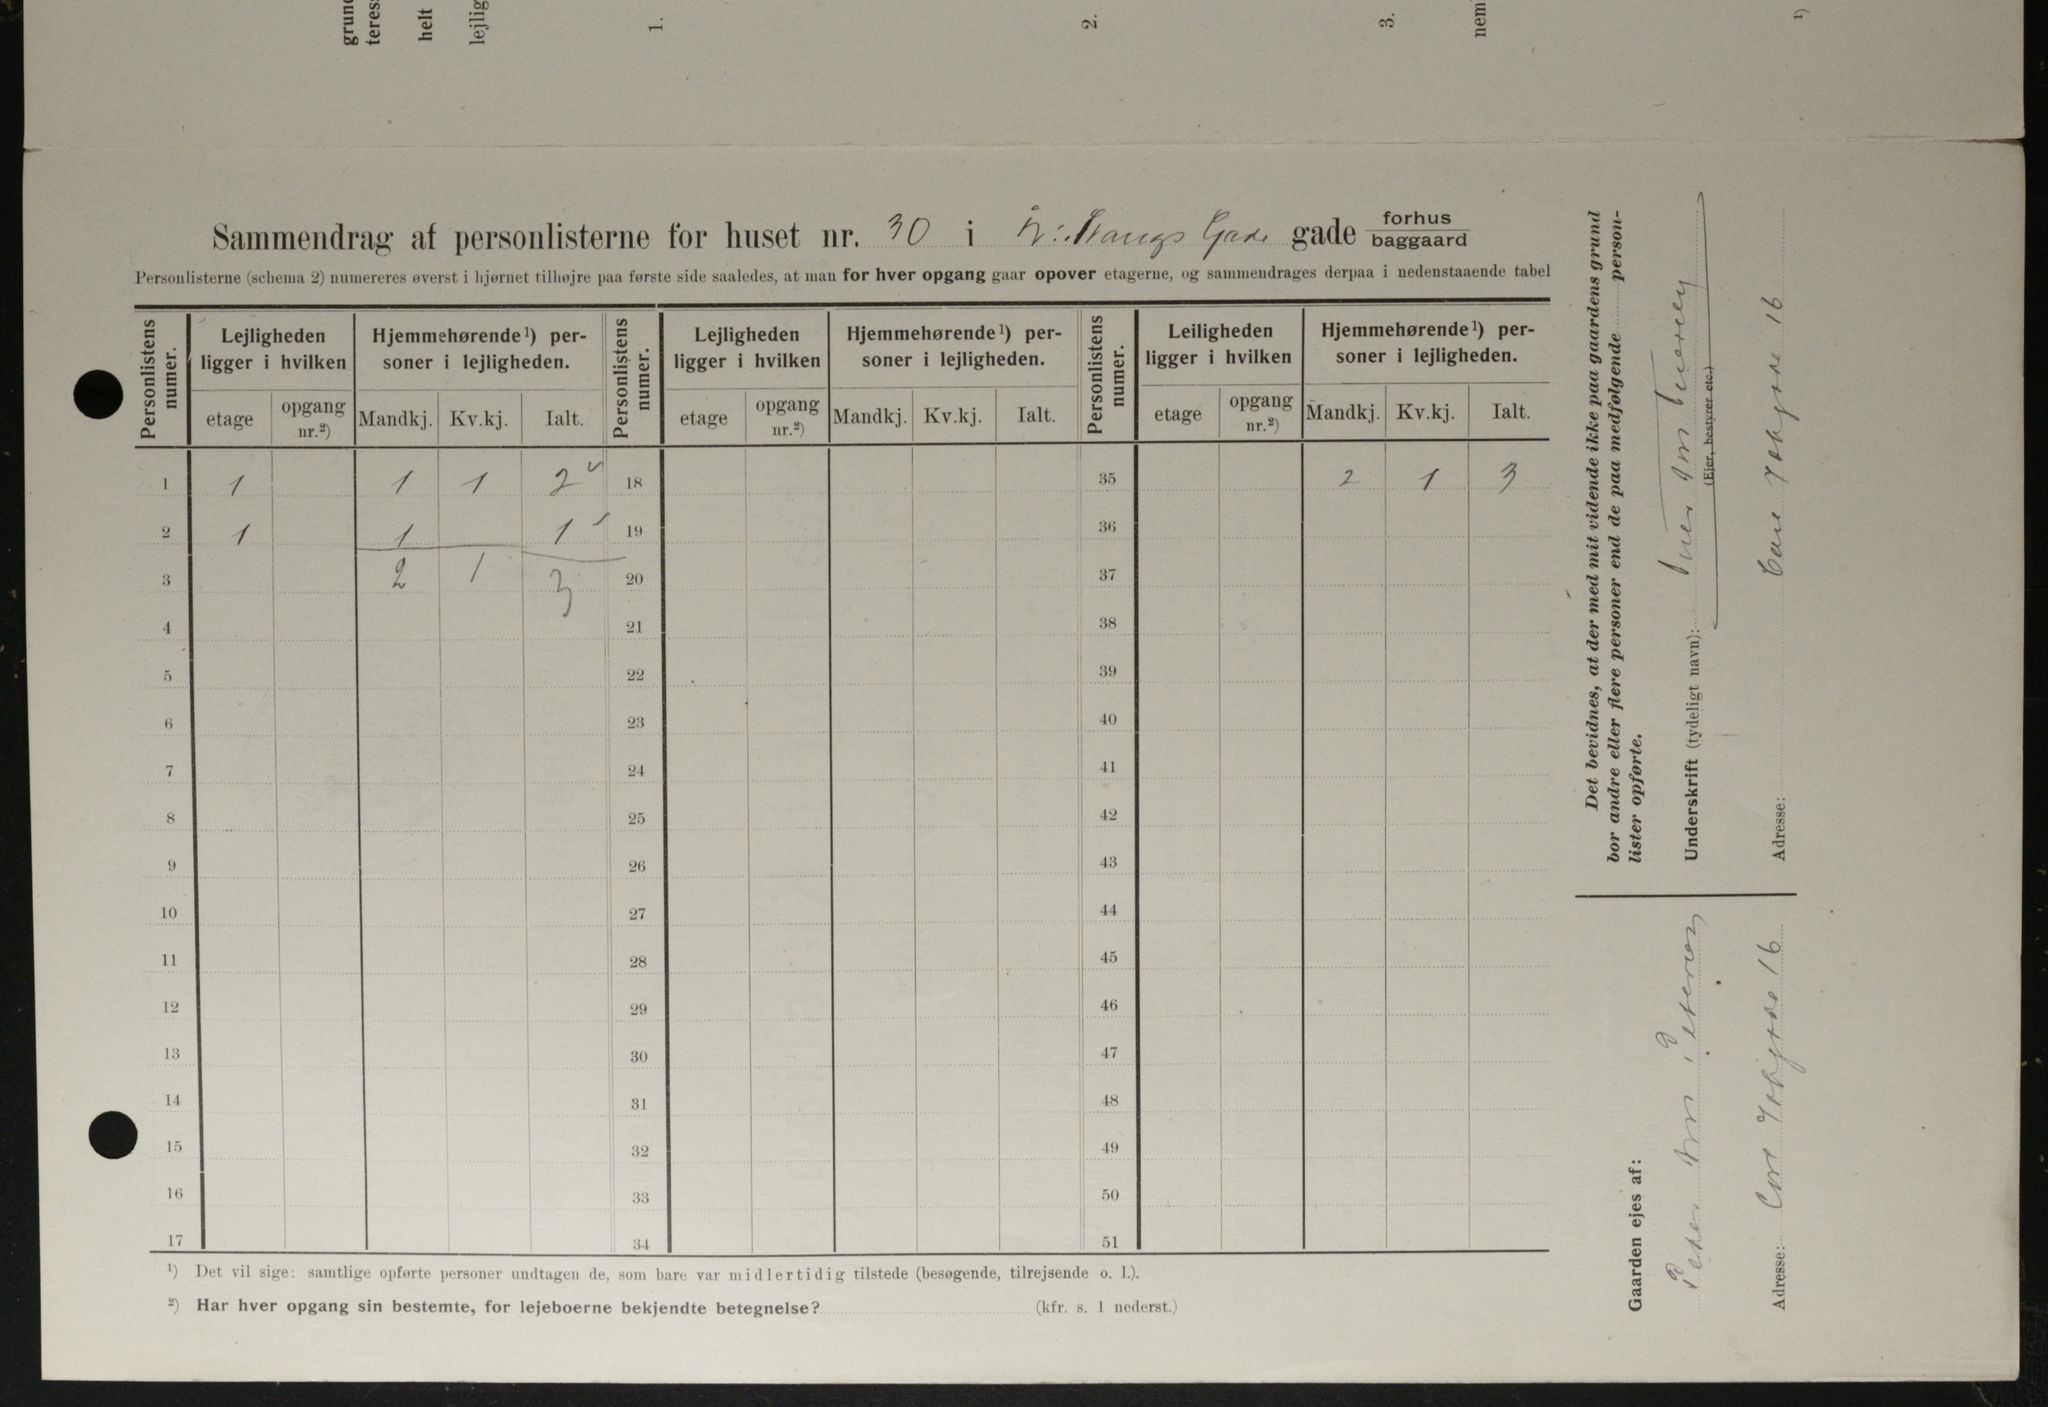 grund
teres
helt
lejlig
1.
2.
3.
nem
1)
Sammendrag af personlisterne for huset nr. 30 i gade forhus
baggaard
Personlisterne (schema 2) numereres øverst i hjørnet tilhøjre paa første side saaledes, at man for hver opgang gaar opover etagerne, og sammendrages derpaa i nedenstaaende tabel
Personlistens numer. Lejligheden ligger i hvilken Hjemmehørende1) personer i lejligheden. Personlistens numer. Lejligheden ligger i hvilken Hjemmehørende1) personer i lejligheden. Personlistens numer. Leiligheden ligger i hvilken Hjemmehørende1) personer i lejligheden.
etage opgang nr.2) Mandkj. Kv.kj. Ialt. etage opgang nr.2) Mandkj. Kv.kj. Ialt. etage opgang nr.2) Mandkj. Kv.kj. Ialt.
1 1 1 1 2 18 35 2 1 3
2 1 1 1 19 36
3 2 1 3 20 37
4 21 38
5 22 39
6 23 40
7 24 41
8 25 42
9 26 43
10 27 44
11 28 45
12 29 46
13 30 47
14 31 48
15 32 49
16 33 50
17 34 51
1) Det vil sige: samtlige opførte personer undtagen de, som bare var midlertidig tilstede (besøgende, tilrejsende o. l.).
2) Har hver opgang sin bestemte, for lejeboerne bekjendte betegnelse? (kfr. s. 1 nederst.)
Det bevidnes, at der med mit vidende ikke paa gaardens grund
bor andre eller flere personer end de paa medfølgende person-
lister opførte.
Underskrift (tydeligt navn):
(Eier, bestyrer etc.)
Adresse: 16
Gaarden ejes af:
Petersen
Adresse: 16